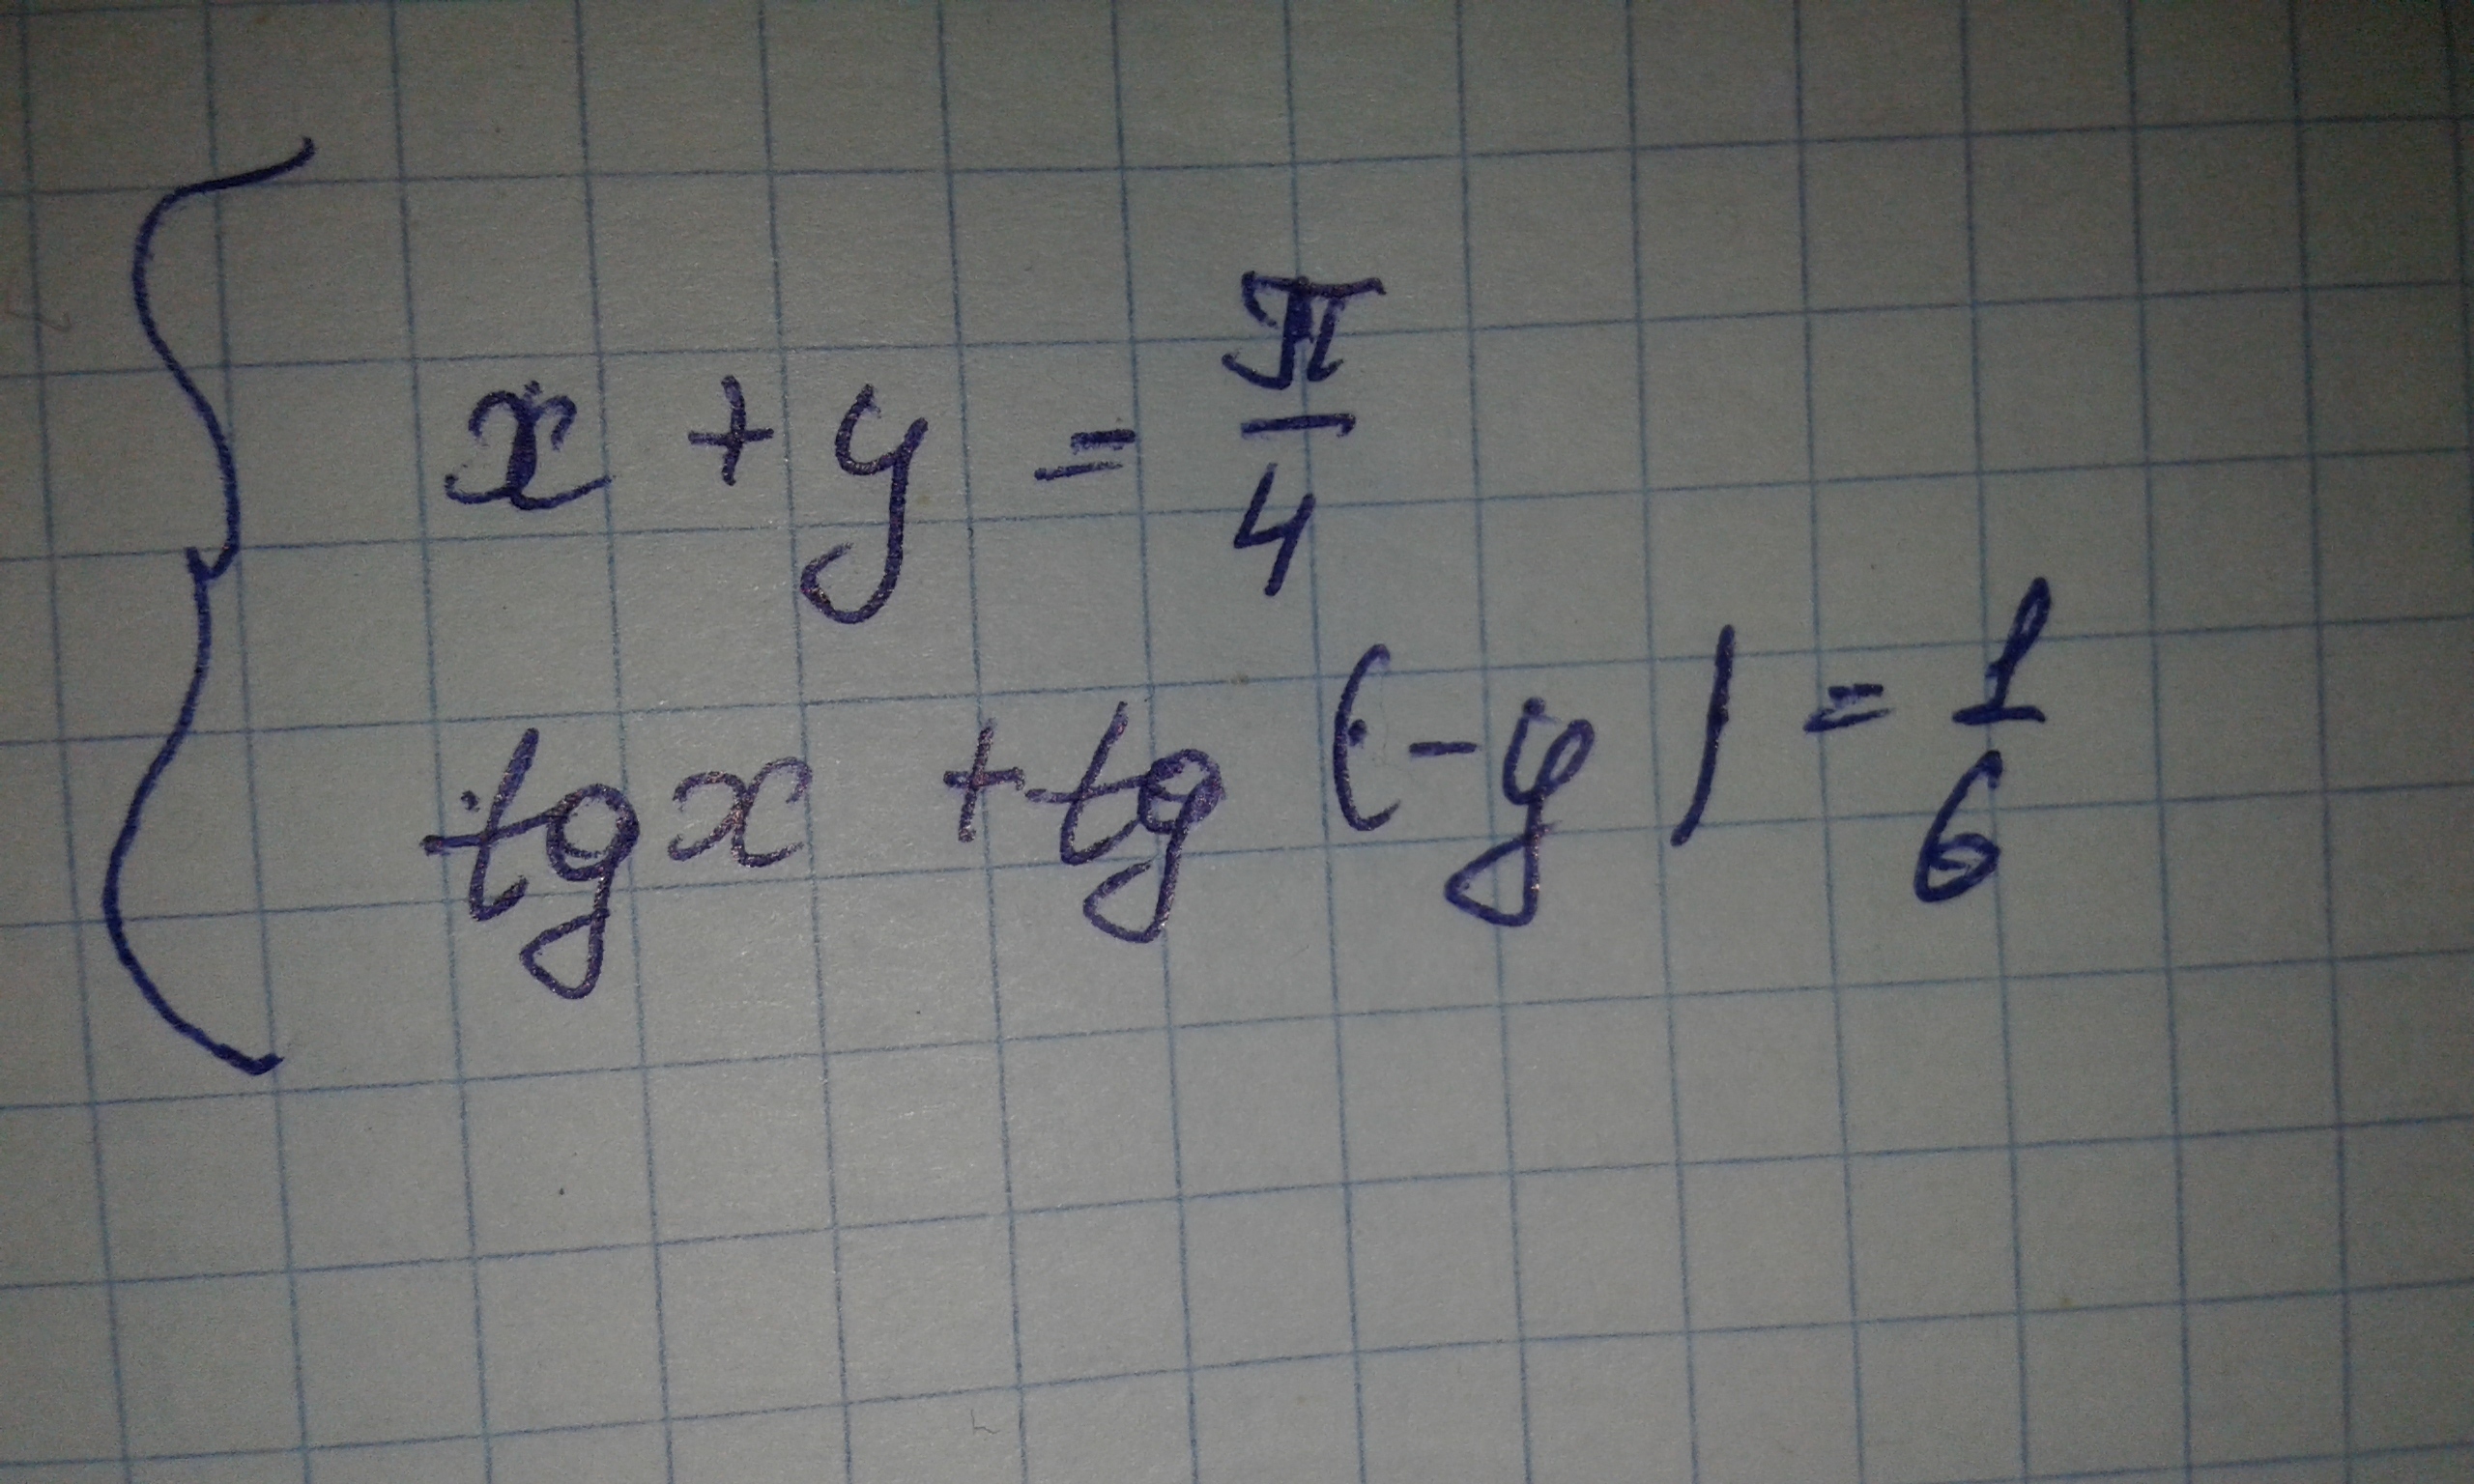 x + y = π/4
tg x + tg (-y) = 1/6